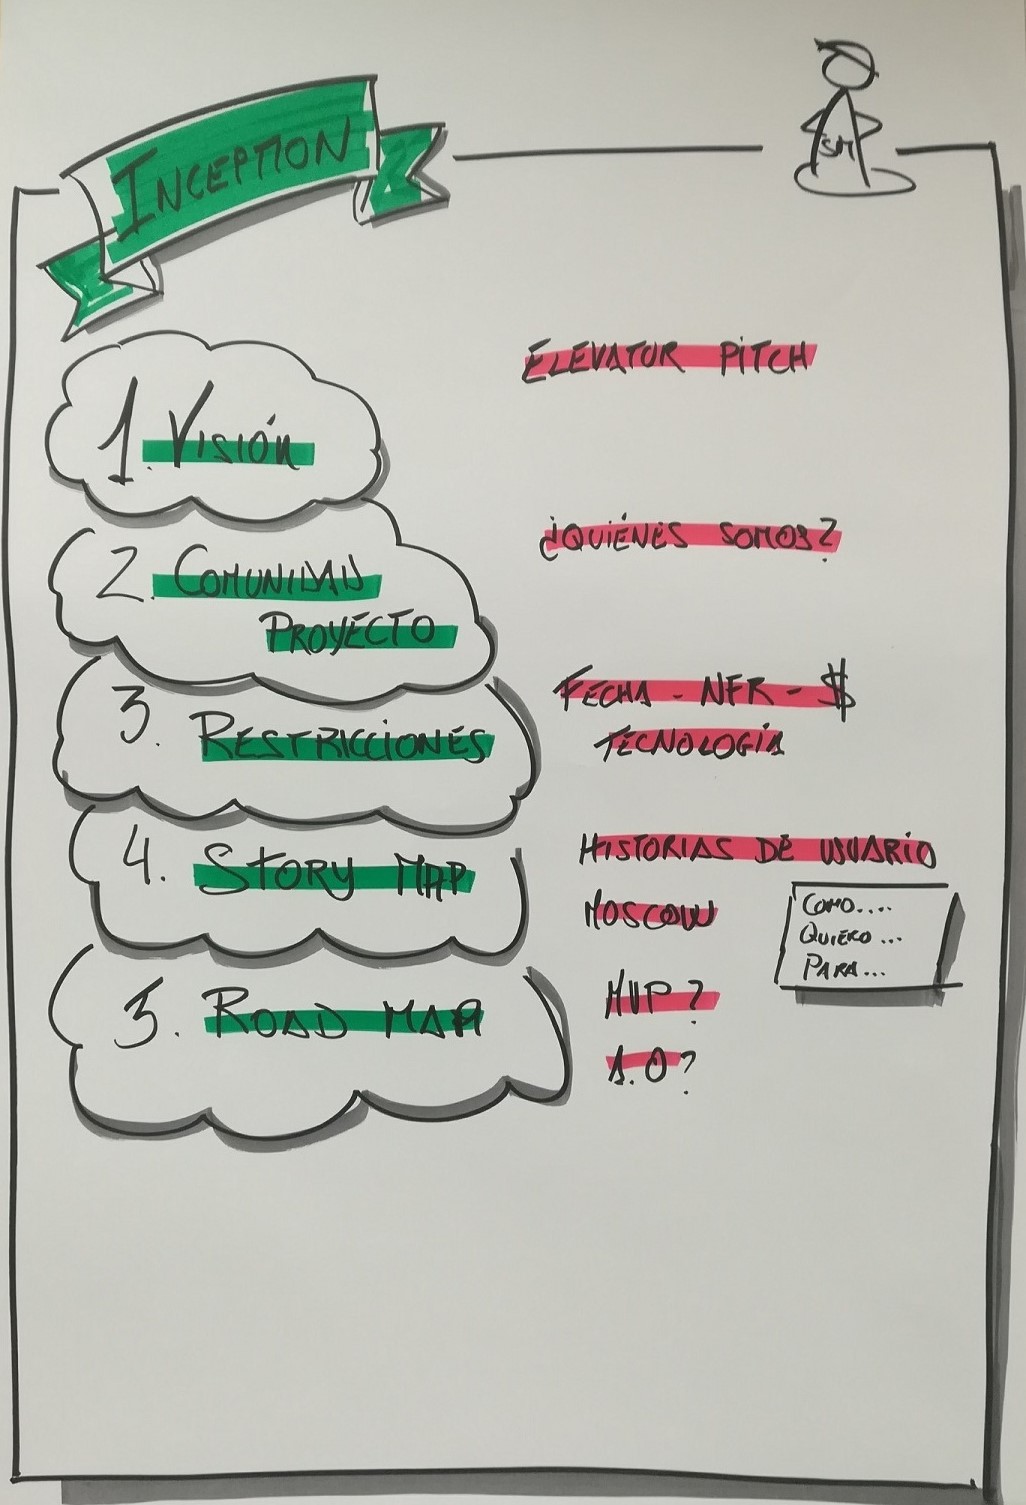 INCEPTION
SM
1. VISIÓN
ELEVATOR PITCH
2. COMUNIDAD
PROYECTO
¿QUIÉNES SOMOS?
3. RESTRICCIONES
FECHA - NFR - $
TECNOLOGÍA
4. STORY MAP
HISTORIAS DE USUARIO
MOSCOW
COMO....
QUIERO...
PARA...
5. ROAD MAP
MVP?
1.0?